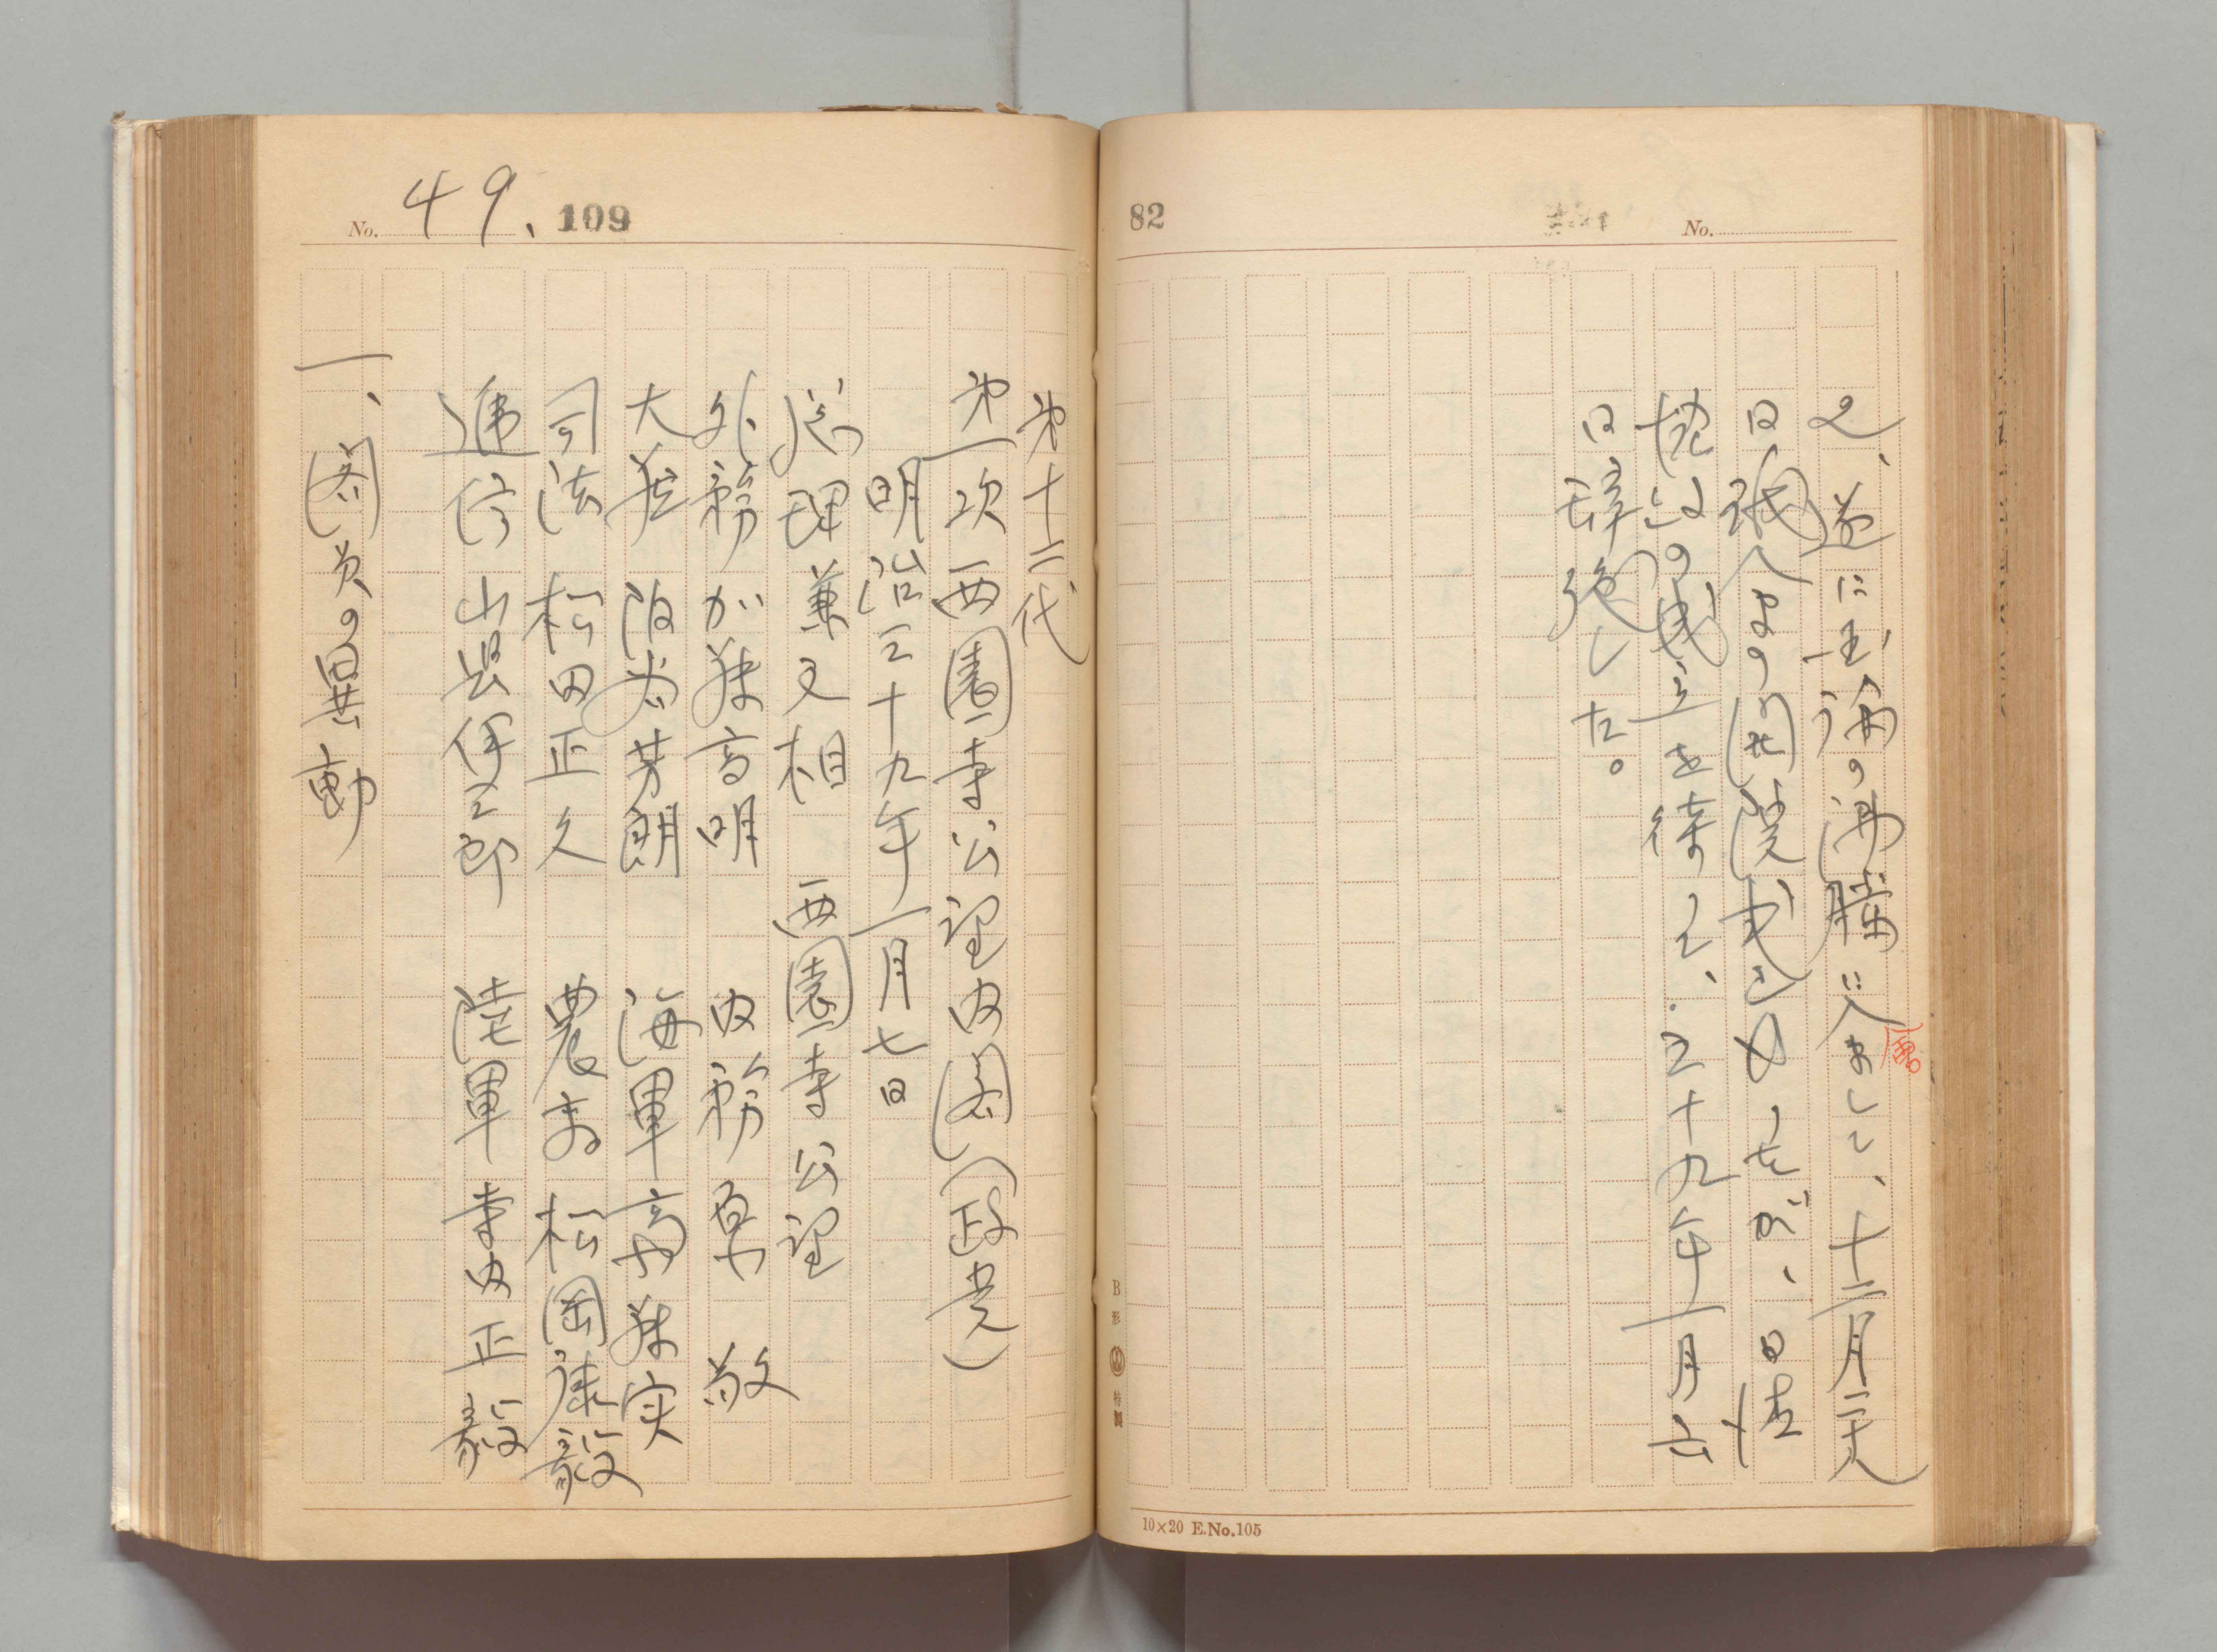 82
No.
遂に
の沸騰に
まして、十二月
開院式
が、日清
協約の成立を待って、三十九年一月
日辞
した。
B形 特製
10×20 E.No.105
No. 49. 109
第十二代
第一次西園寺公望内閣(政党)
明治三十九年一月七日
総理兼文相 西園寺公望
外務 加藤高明 内務 原 敬
大蔵 阪谷芳朗 海軍 斎藤実
司法 松田正久 農商 松岡康毅
逓信 山县伊三郎 陸軍 寺内正毅
一、閣員の異動